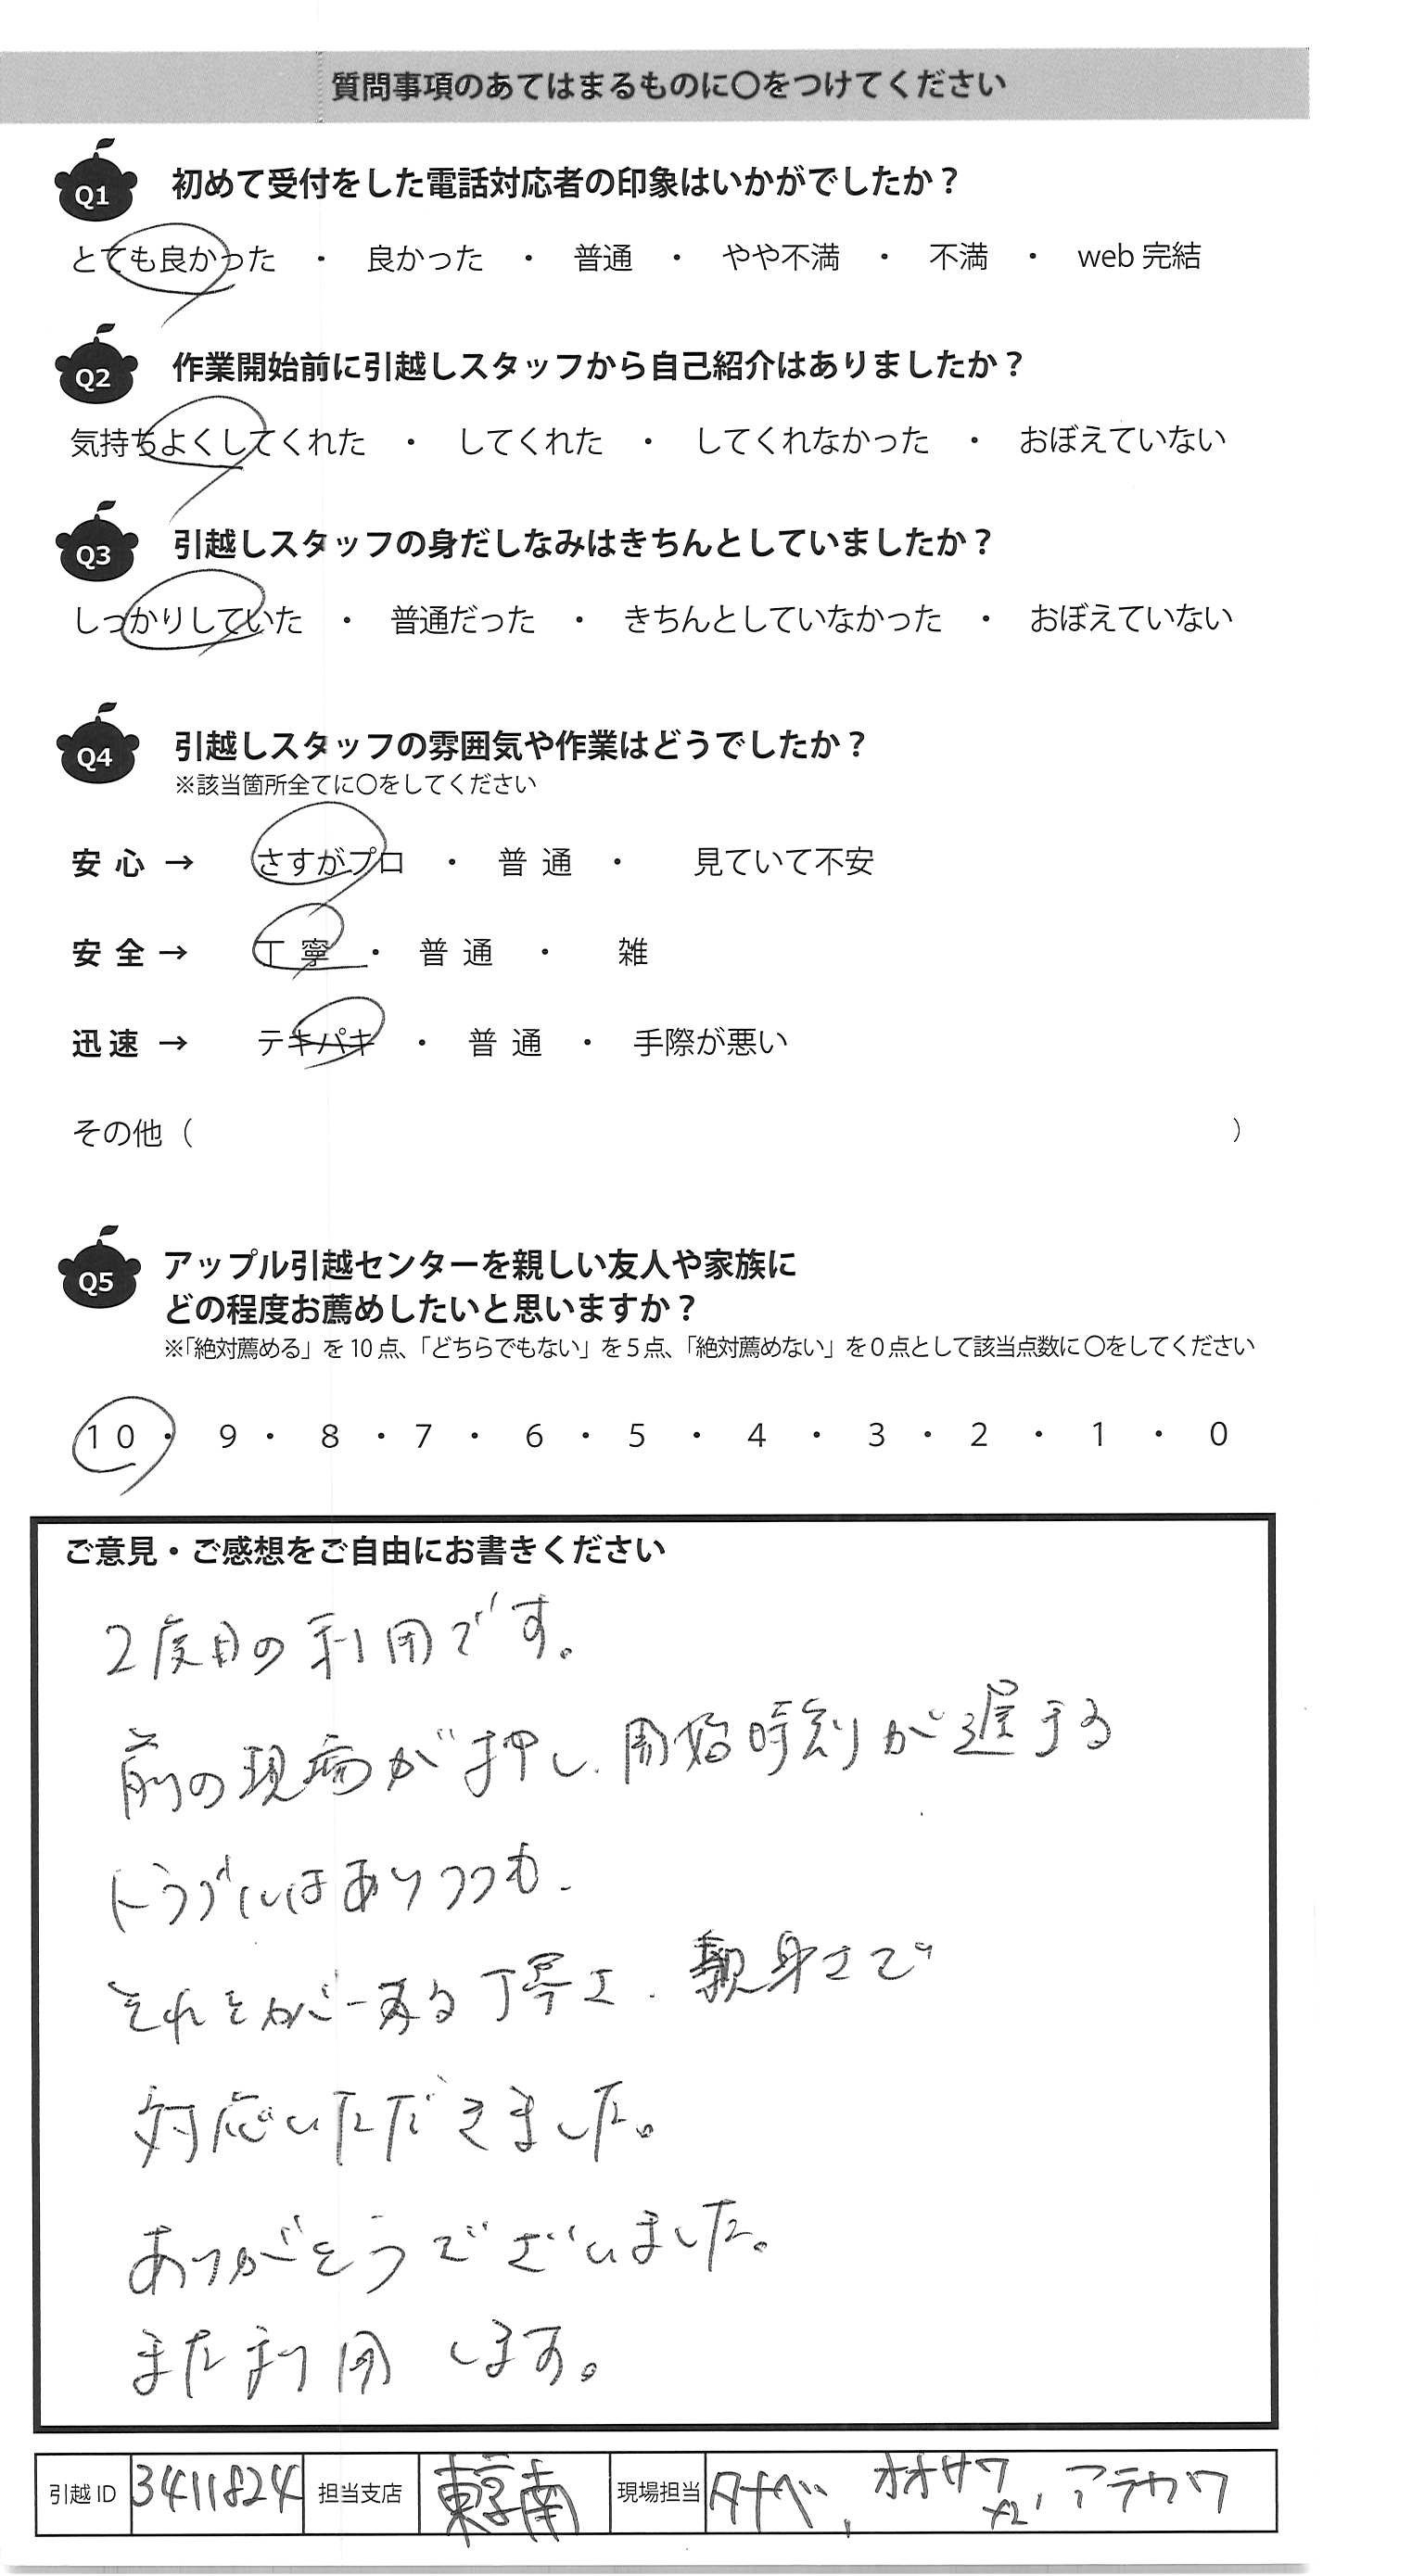 質問事項のあてはまるものに〇をつけてください
Q1 初めて受付をした電話対応者の印象はいかがでしたか？
とても良かった ・ 良かった ・ 普通 ・ やや不満 ・ 不満 ・ web 完結
Q2 作業開始前に引越しスタッフから自己紹介はありましたか？
気持ちよくしてくれた ・ してくれた ・ してくれなかった ・ おぼえていない
Q3 引越しスタッフの身だしなみはきちんとしていましたか？
しっかりしていた ・ 普通だった ・ きちんとしていなかった ・ おぼえていない
Q4 引越しスタッフの雰囲気や作業はどうでしたか？
※該当箇所全てに〇をしてください
安心 → さすがプロ ・ 普通 ・ 見ていて不安
安全 → 丁寧 ・ 普通 ・ 雑
迅速 → テキパキ ・ 普通 ・ 手際が悪い
その他（ ）
Q5 アップル引越センターを親しい友人や家族に
どの程度お薦めしたいと思いますか？
※「絶対薦める」を 10 点、「どちらでもない」を 5 点、「絶対薦めない」を 0 点として該当点数に 〇をしてください
10 ・ 9 ・ 8 ・ 7 ・ 6 ・ 5 ・ 4 ・ 3 ・ 2 ・ 1 ・ 0
ご意見・ご感想をご自由にお書きください
2度目の利用です。
前の現場が押し、開始時刻が遅する
トラブルはありつつも、
それを丁寧さ、親身さで
対応いただきました。
ありがとうございました。
また利用します。
引越 ID 3411824 担当支店 東京南 現場担当 タナベ, オオサワ, アラカワ